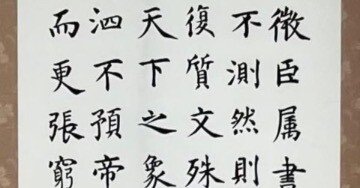 微臣属書
不測然則
復質文殊
天下之象
泗不預帝
而更張窮